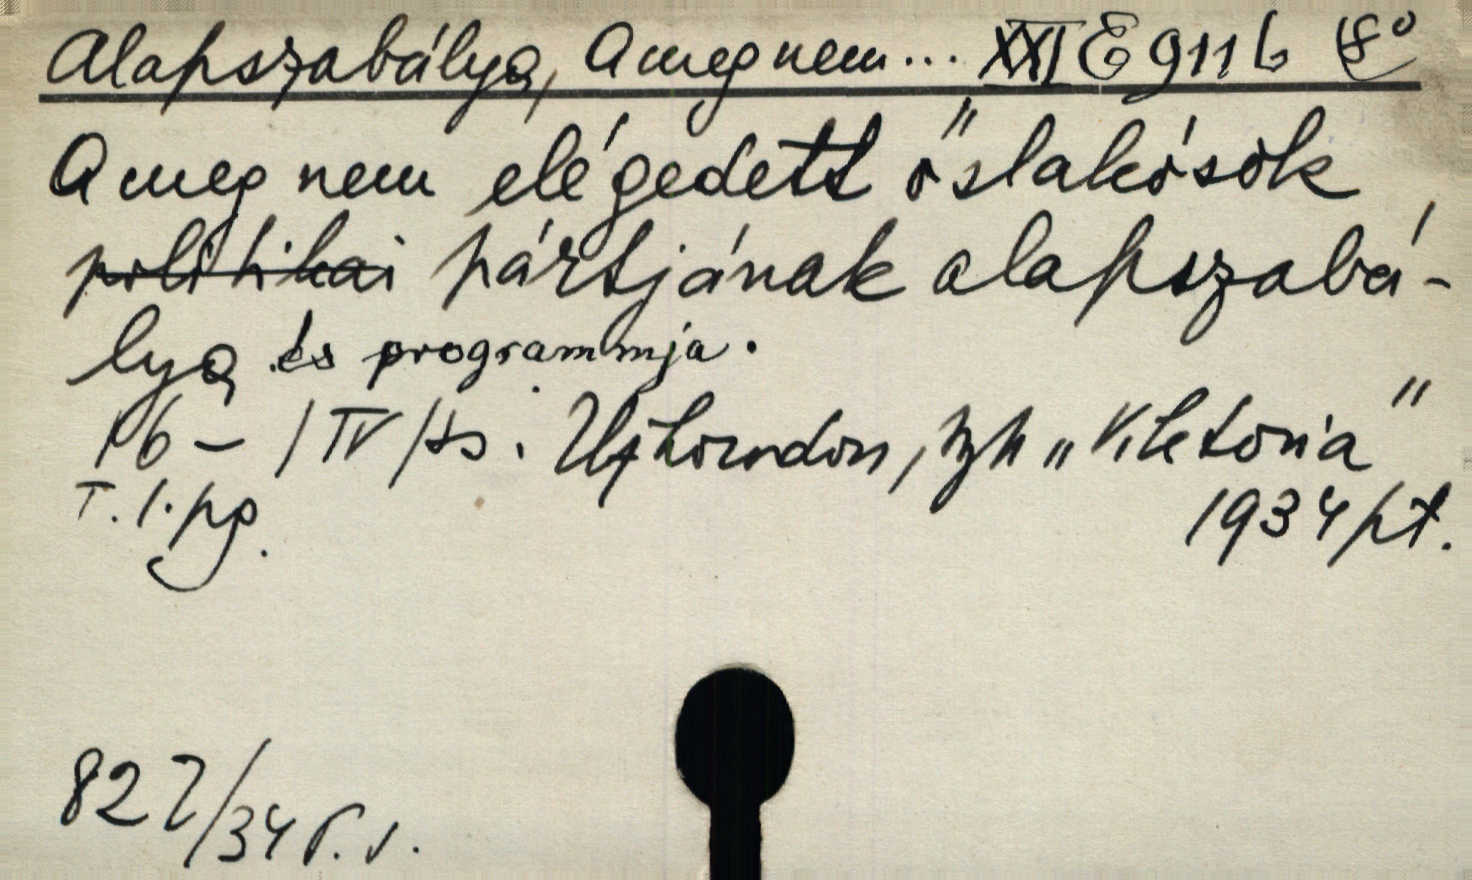 Alapszabálya, A meg nem... XXI E 911 b 8°
A meg nem elégedett őslakósok
politikai pártjának alapszabá-
lya és programmja.
16 - / IV / Ujhorndon, "Viktoria"
T. l. pg. 1934 pt.
827/34